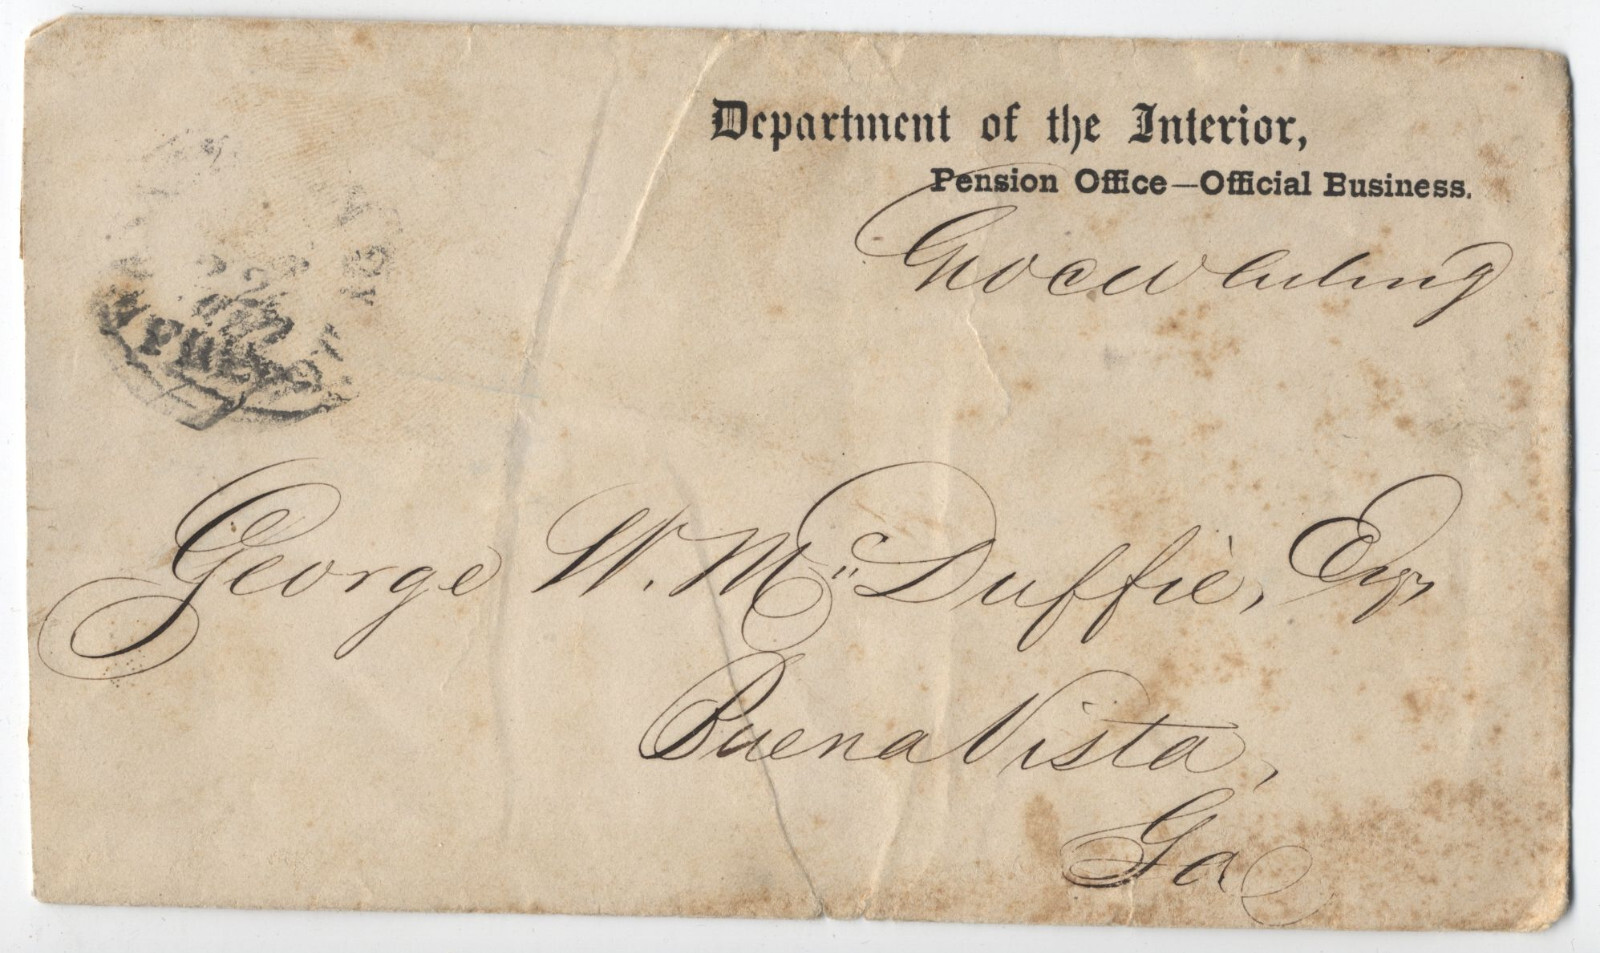 Department of the Interior,
Pension Office—Official Business.
FREE
George W. McDuffie, Esqr
Buena Vista,
Ga